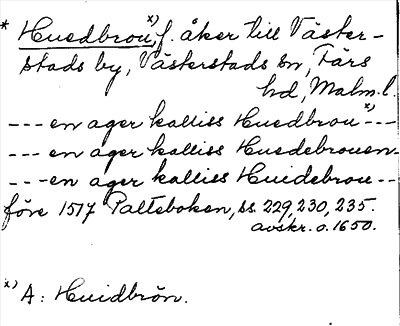 * Huedbrou x), f. åker till Väster-
stads by, Västerstads sn, Färs
hd, Malm. l.
--- en ager kalliss Huedbrou x) ---
--- en ager kalliss Huedebrouen -
--- en ager kalliss Huidebrou --
före 1517 Palteboken, ss. 229, 230, 235.
avskr. o. 1650.
x) A: Huidbrön.